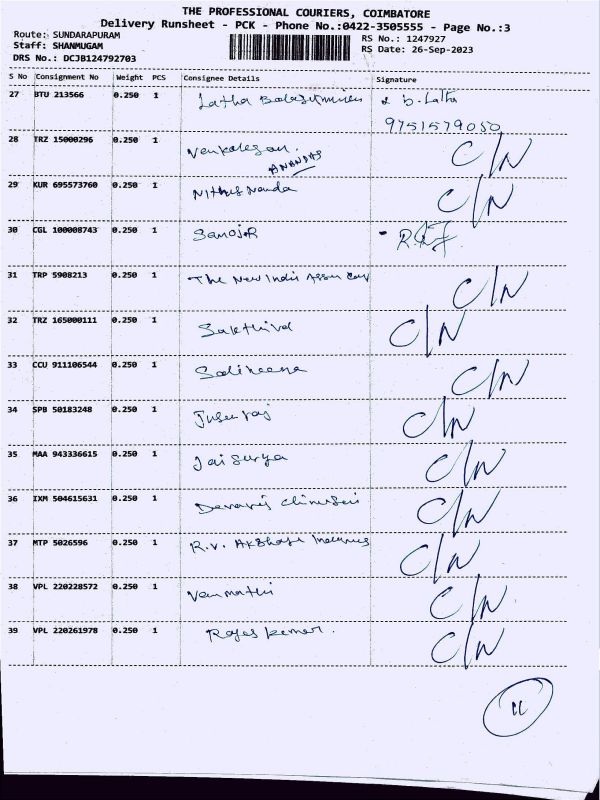 THE PROFESSIONAL COURIERS, COIMBATORE
Delivery Runsheet - PCK - Phone No.:0422-3505555 - Page No.:3
Route: SUNDARAPURAM
RS No.: 1247927
Staff: SHANMUGAM
RS Date: 26-Sep-2023
DRS No.: DCJB124792703
S No Consignment No Weight PCS Consignee Details Signature
27 BTU 213566 0.250 1 Latha b. Latha
9751579050
28 TRZ 15000296 0.250 1 Venkatesan. C/N
ANANDAS
29 KUR 695573760 0.250 1 Nithis Nanda C/N
30 CGL 100008743 0.250 1 Sanoj.R
31 TRP 5908213 0.250 1 The New India Assu C/N
32 TRZ 165000111 0.250 1 Sakthivel C/N
33 CCU 911106544 0.250 1 C/N
34 SPB 50183248 0.250 1 C/N
35 MAA 943336615 0.250 1 Jaisurya C/N
36 IXM 504615631 0.250 1 C/N
37 MTP 5026596 0.250 1 R.V. C/N
38 VPL 220228572 0.250 1 Venmathi C/N
39 VPL 220261978 0.250 1 Rajes kumar. C/N
11